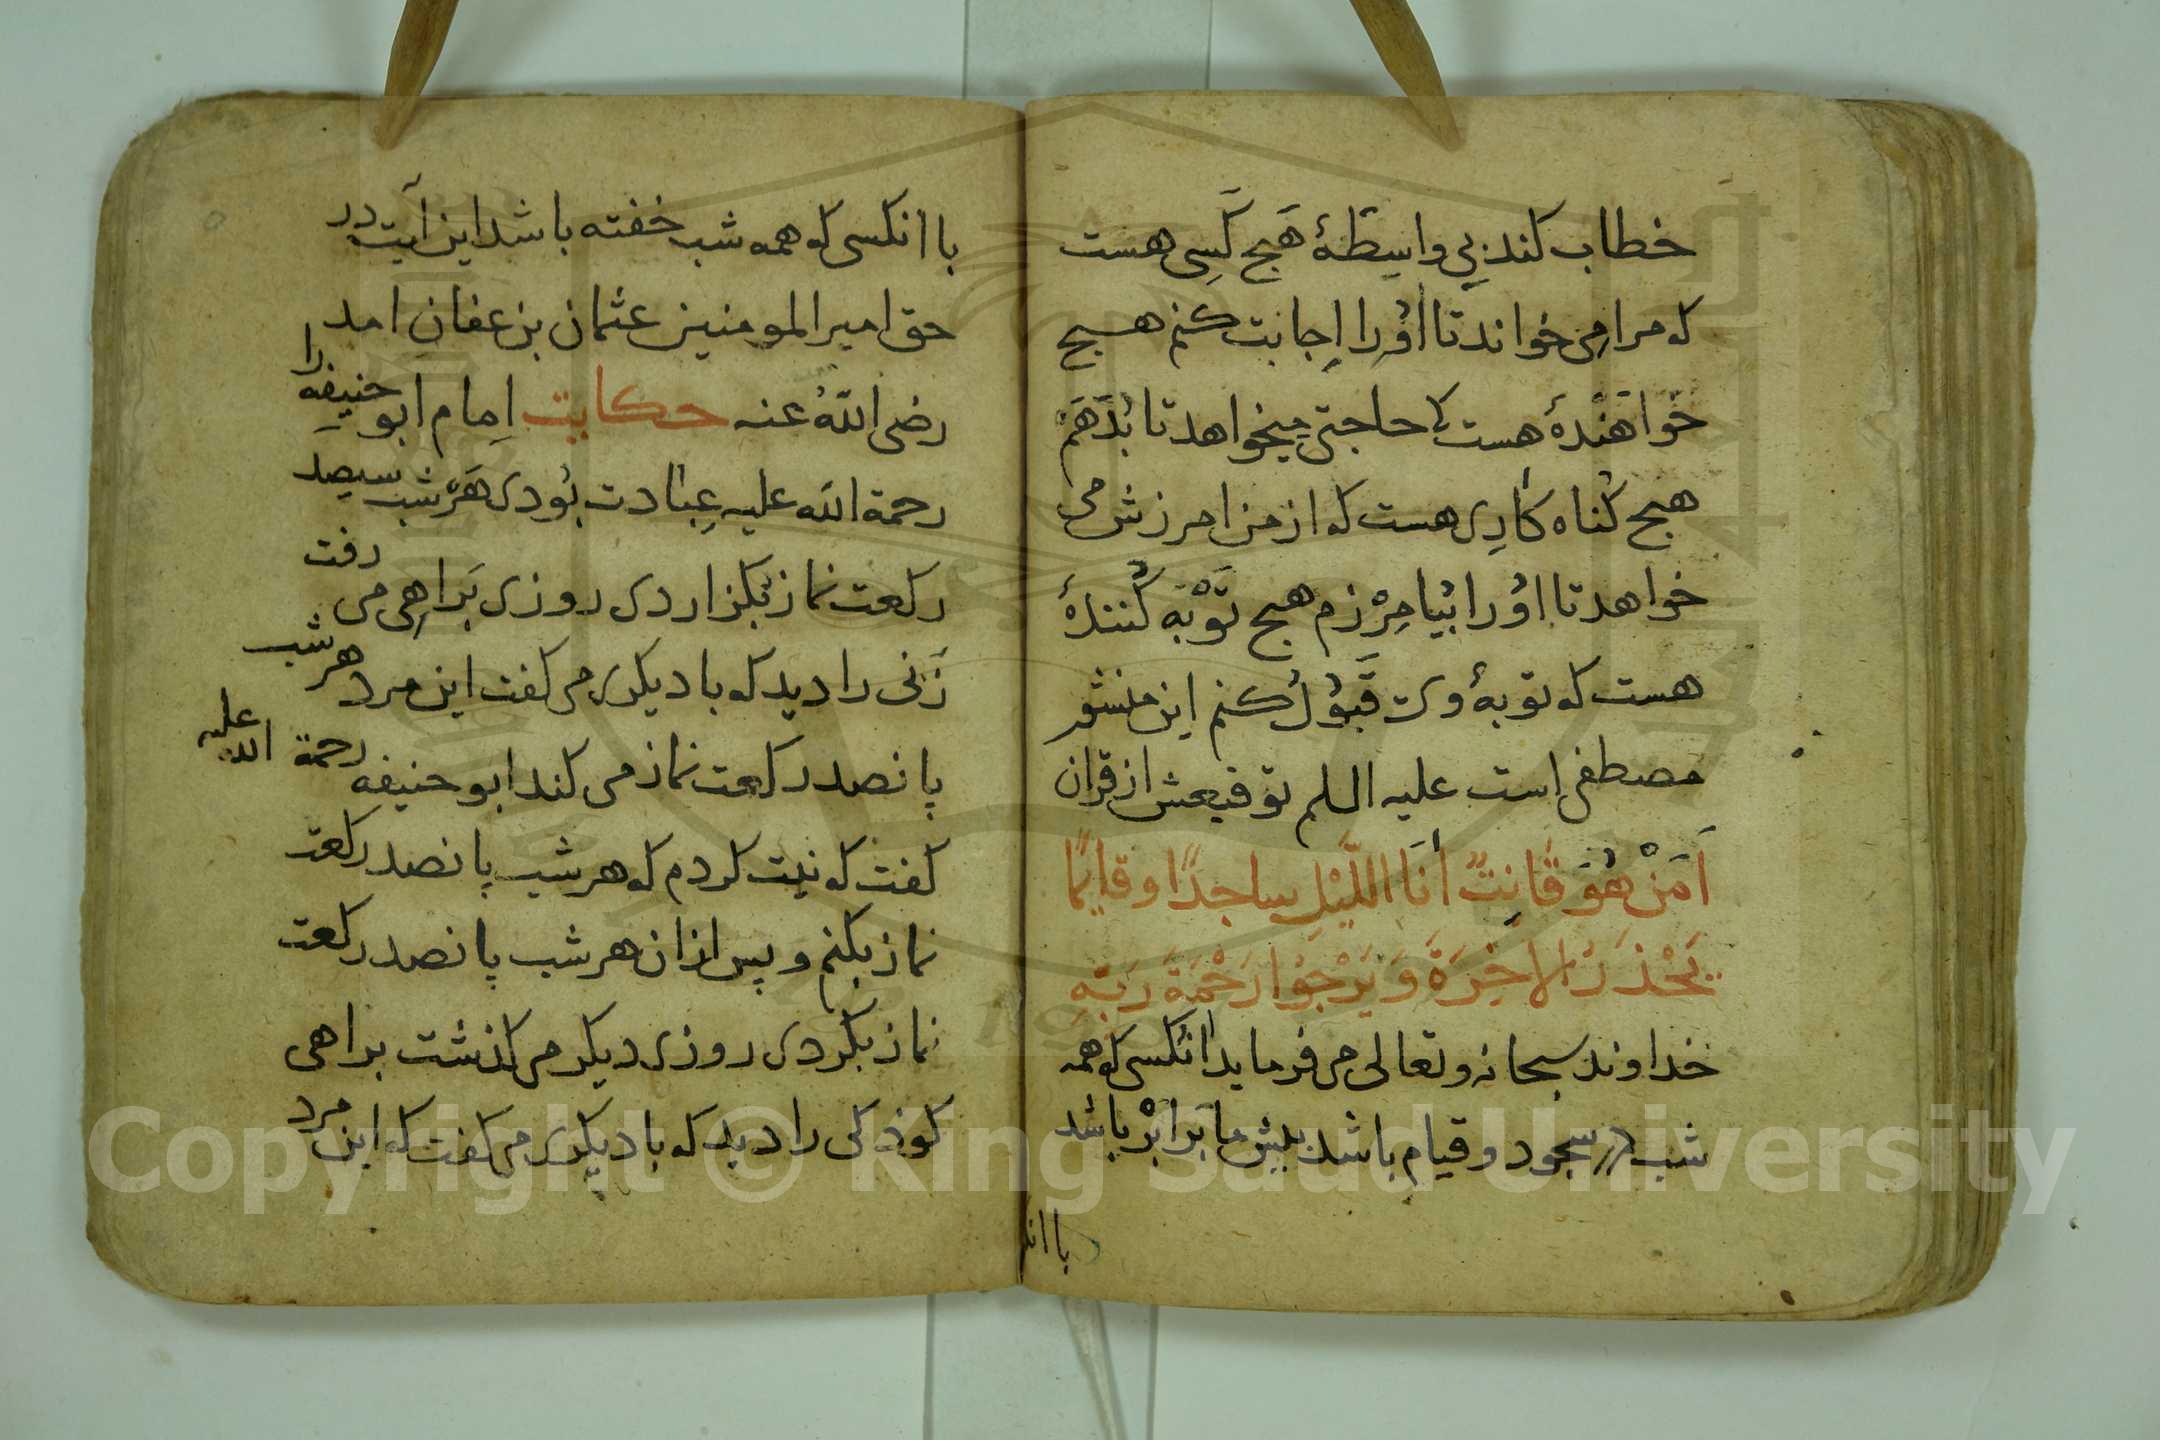 خطاب کند بی واسِطَهٔ هَیچ کَسِی هست
که مرا می خواند تا اوُرا اِجابت کنم هیچ
خَواهَنْدهٔ هست که حاجتی میخواهد تا بُدَهَمْ
هیچ کُناه کارِی هست که از من امرزش می
خواهد تا اوُرا بیامِرْزم هیچ تَوْبَه کُنندهٔ
هست که توبهٔ وی قَبوُل کنم این منشور
مصطفی است علیه السلم توقیعش از قران
اَمَنْ هُوَ قَانِتٌ اٰنَا اللَّیْلِ ساجدًا وقایمًا
یَحْذَرُ الاخِرَةَ وَیَرْجوُا رَحْمَةَ رَبّهِ
خداوند سبحانه وتعالی می فرماید انکسی که همه
شب در سجود وقیام باشد بیش ما بَرابَرْ باشد
با انک
با انکسی که همه شب خفته باشد این آیت در
حق امیر المومنین عثمان بن عفان امد
رضی اللّٰهُ عنه حکایت اِمام ابو حنیفه را
رحمة اللّٰه علیه عِبادت بوُدی هَر شب سیصد
رکعت نماز بکزاردی روزی بَراهِی می رفت
زَنی را دید که با دیکری می کفت این مرد هر شب
پانصد رکعت نماز می کند ابو حنیفه رحمة اللّٰه علیه
کفت که نیت کردم که هر شب پانصد رکعت
نماز بکنم و پس ازان هر شب پانصد رکعت
نماز بکردی روزی دیکر می کذشت براهی
کوذکی را دید که با دیکری می کفت که این مرد
Copyright © King Saud University